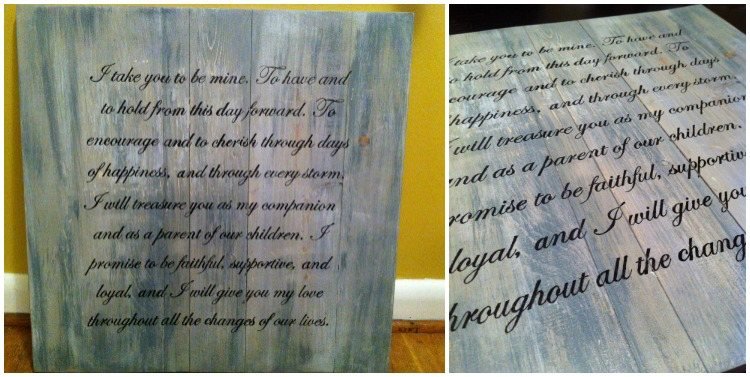 I take you to be mine. To have and
to hold from this day forward. To
encourage and to cherish through days
of happiness, and through every storm.
I will treasure you as my companion
and as a parent of our children. I
promise to be faithful, supportive, and
loyal, and I will give you my love
throughout all the changes of our lives.
take you to be mine. To have and
to hold from this day forward. To
encourage and to cherish through days
happiness, and through every storm.
I will treasure you as my companion
and as a parent of our children.
romise to be faithful, supportive,
loyal, and I will give you
throughout all the chang